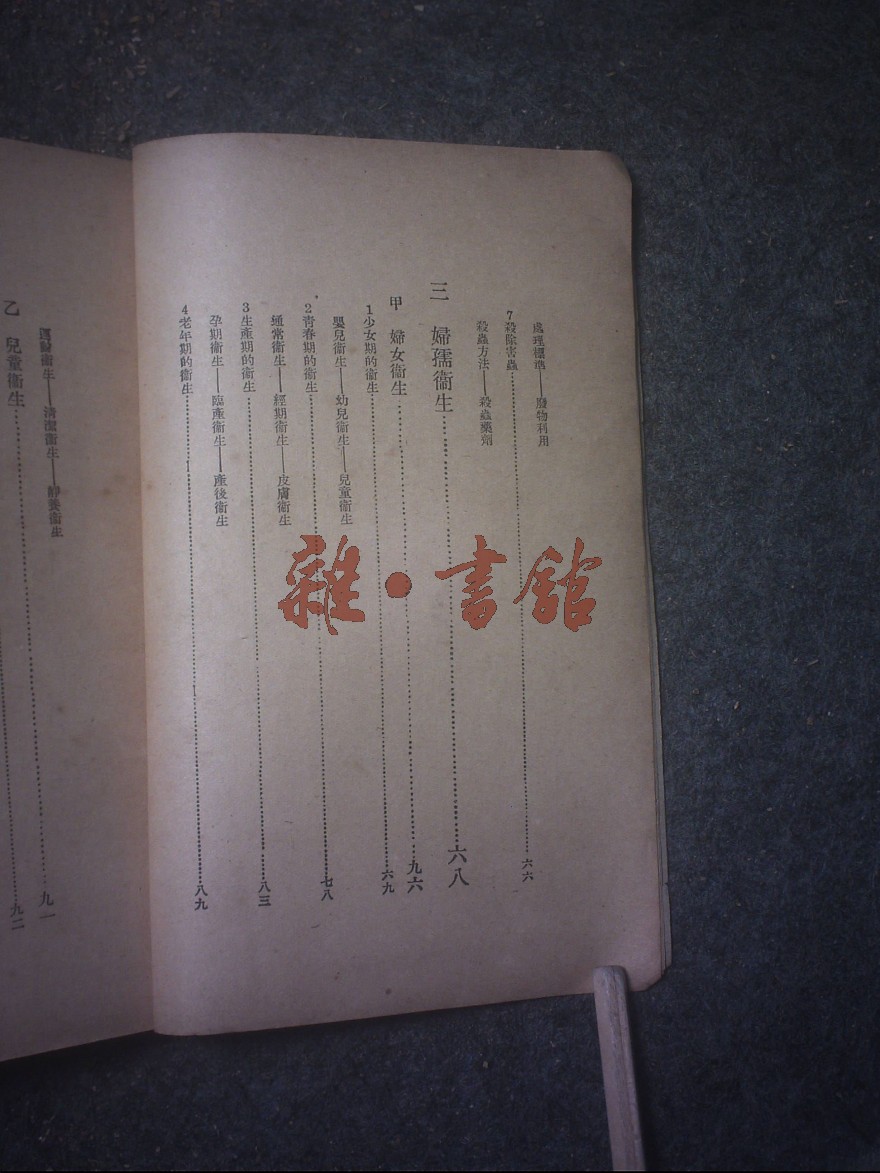 處理標準——廢物利用
7 殺除害蟲……六六
殺蟲方法——殺蟲藥劑
三 婦孺衞生……六八
甲 婦女衞生……九六
1 少女期的衞生……六九
嬰兒衞生——幼兒衞生——兒童衞生
2 青春期的衞生……七八
通常衞生——經期衞生——皮膚衞生
3 生產期的衞生……八三
孕期衞生——臨產衞生——產後衞生
4 老年期的衞生……八九
運動衞生——清潔衞生——靜養衞生
……九一
乙 兒童衞生……九二
雜·書館